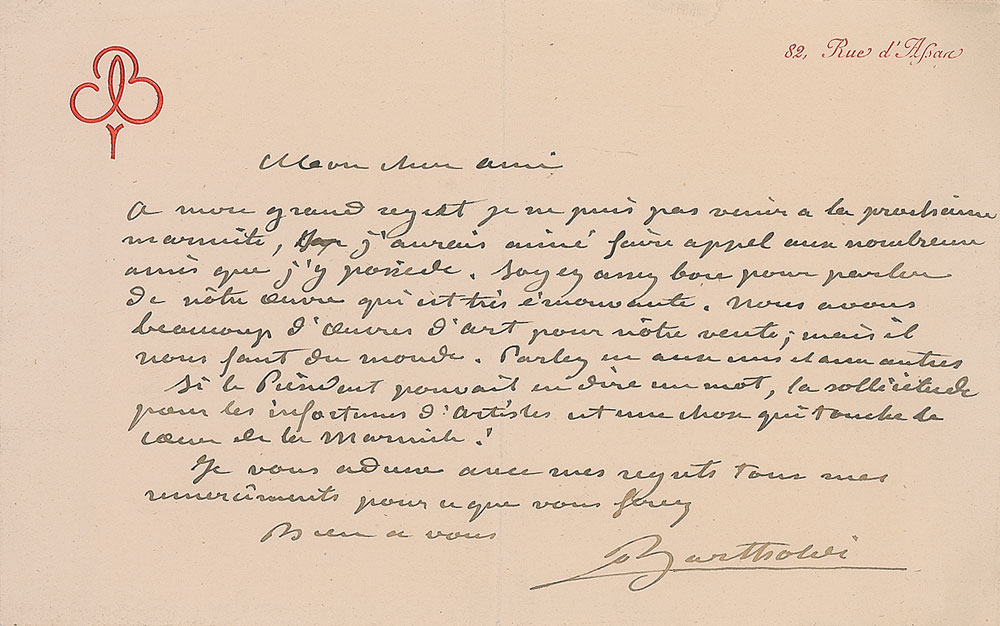 82, Rue d'Assas
Mon cher ami
A mon grand regret je ne puis pas venir a la prochaine
marmite, j'aurais aimé faire appel aux nombreux
amis que j'y possède. Soyez assez bon pour parler
de nôtre œuvre qui est très émouvante. Nous avons
beaucoup d'œuvres d'art pour nôtre vente; mais il
nous faut du monde. Parlez en aux uns et aux autres
Si le Président pouvait en dire un mot, la sollicitude
pour les infortunes d'artistes est une chose qui touche le
cœur de la Marmite!
Je vous adresse avec mes regrets tous mes
remerciments pour ce que vous ferez
Bien a vous
Bartholdi